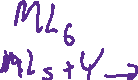 ML6
MLs+Y →